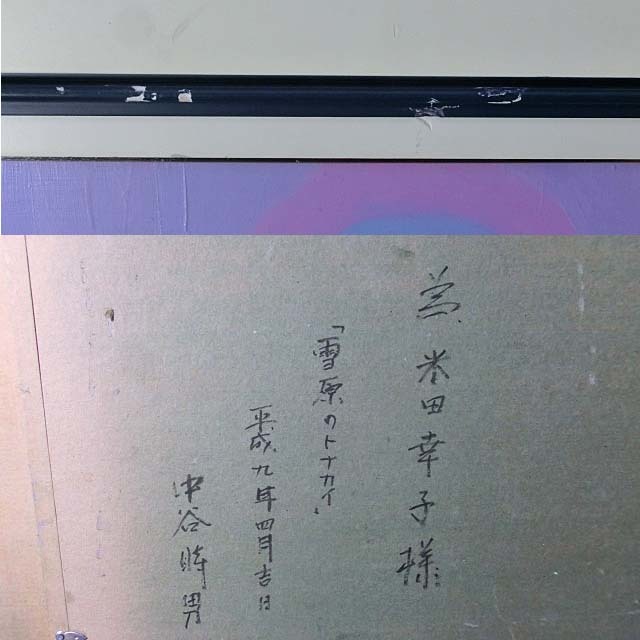 為 米田幸子様
「雪原のトナカイ」
平成九年四月吉日
中谷時男